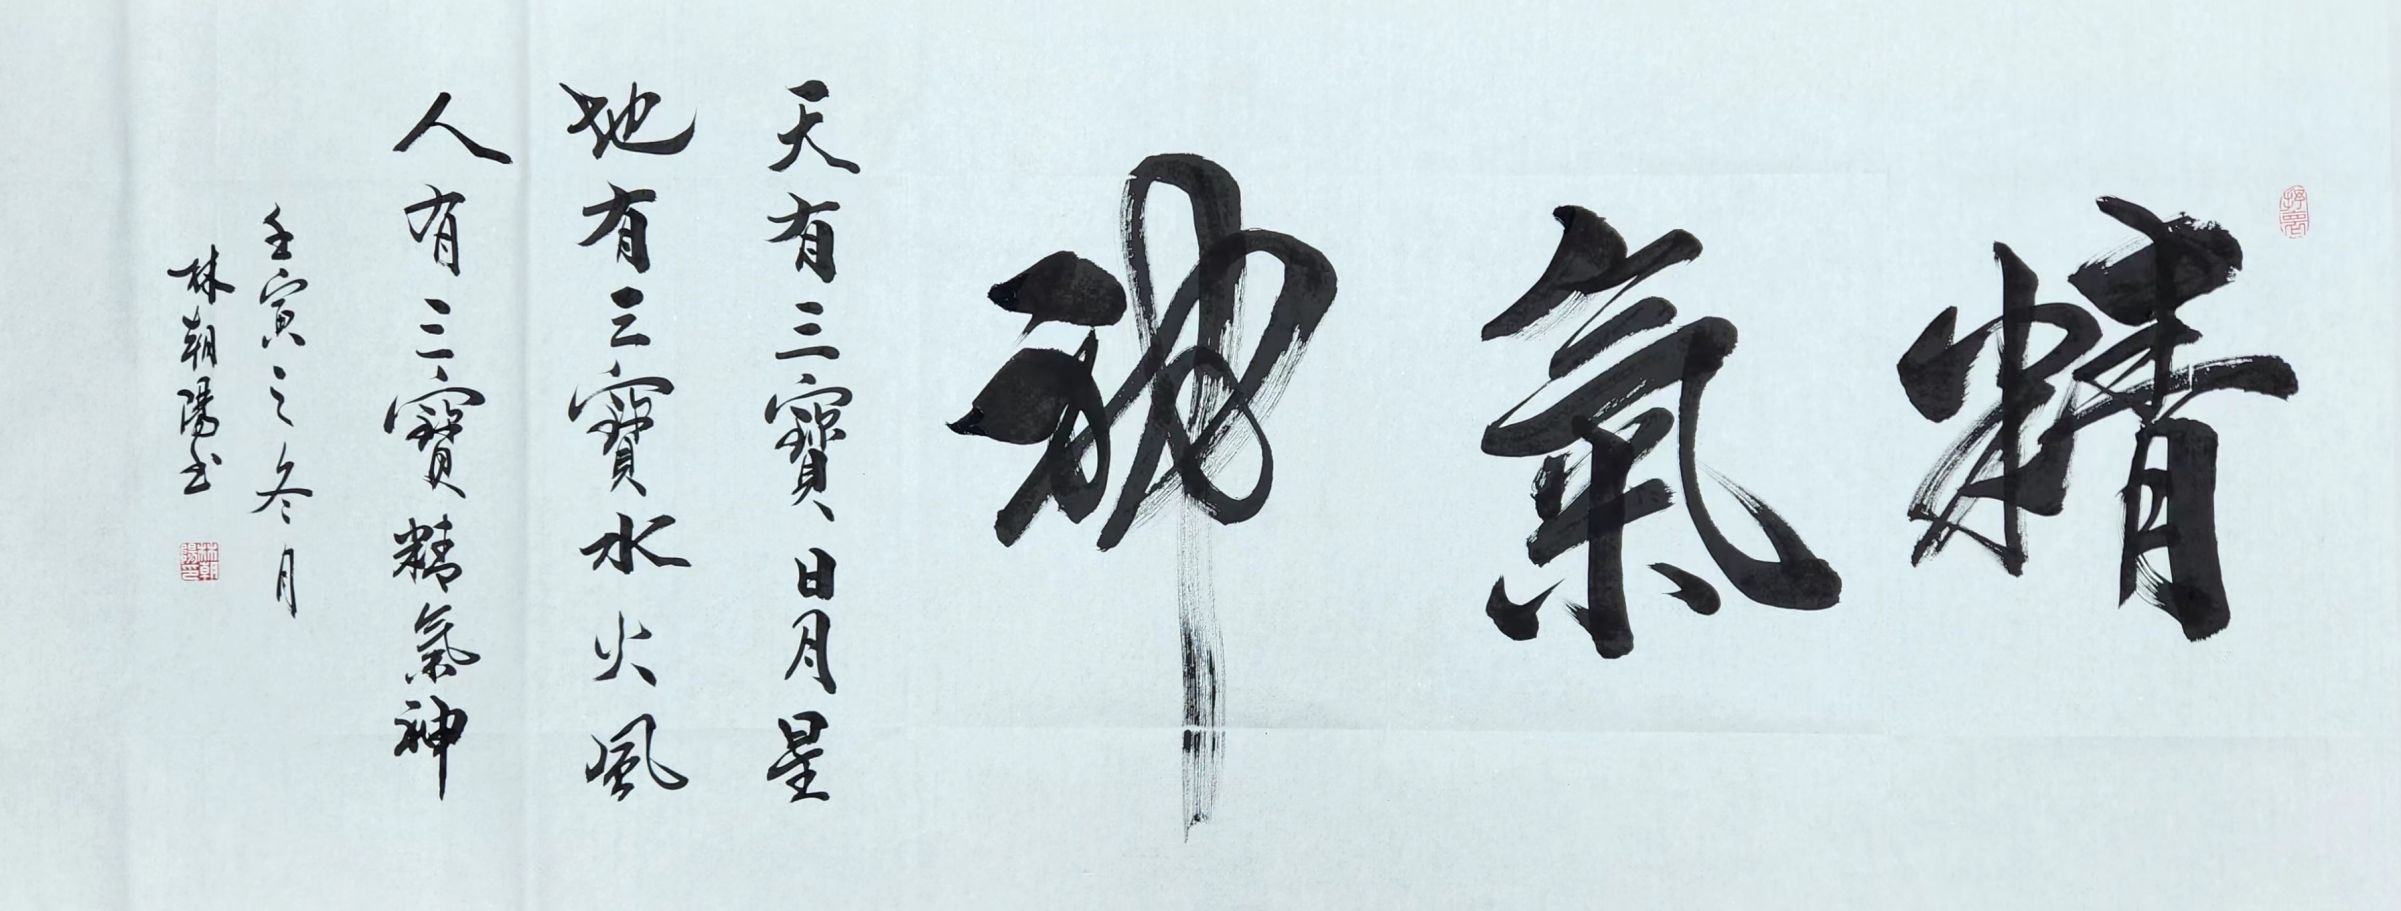 精氣神
天有三寶日月星
地有三寶水火風
人有三寶精氣神
壬寅之冬月
林朝陽书
林朝陽印